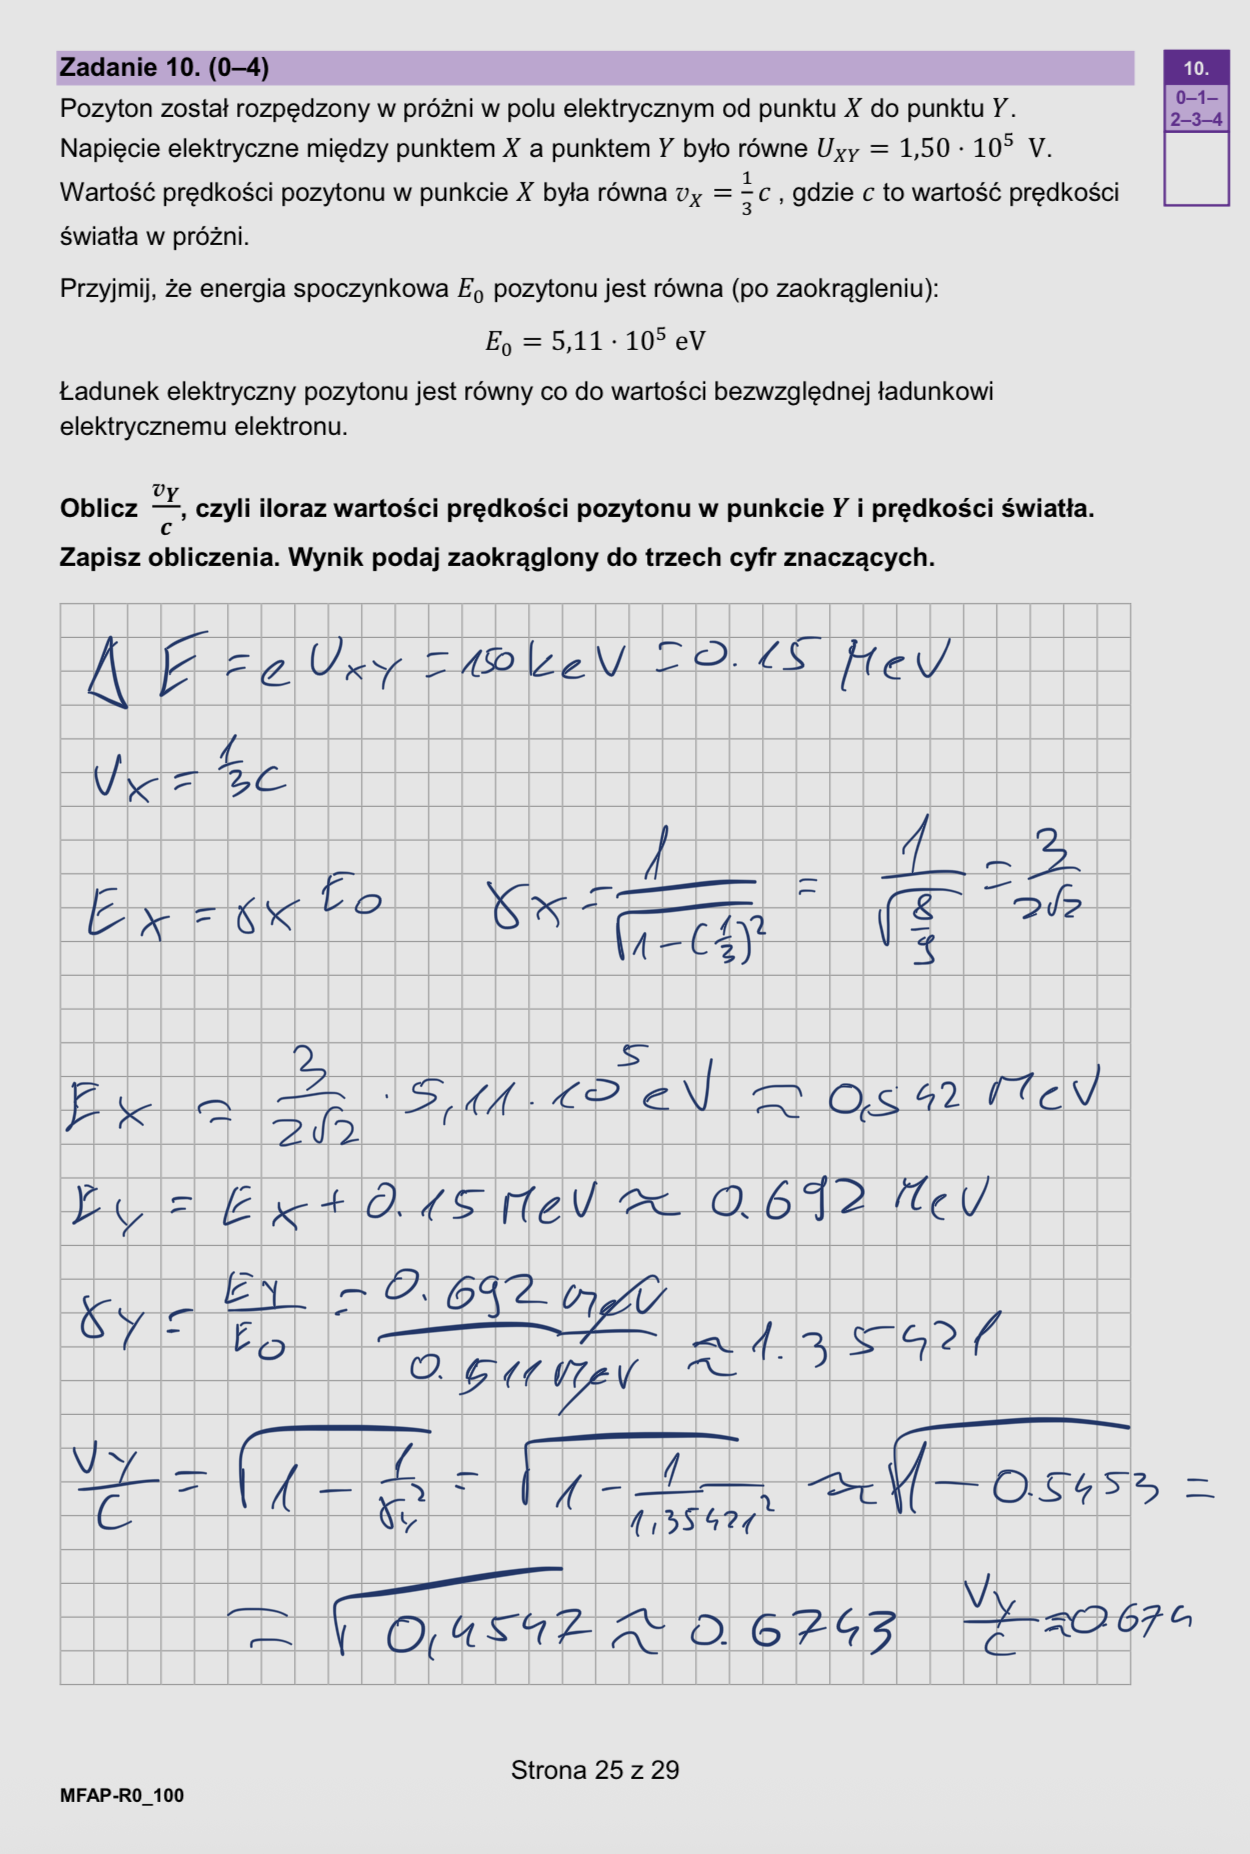 Zadanie 10. (0–4)
10.
0–1–
2–3–4
Pozyton został rozpędzony w próżni w polu elektrycznym od punktu X do punktu Y.
Napięcie elektryczne między punktem X a punktem Y było równe U_XY = 1,50 · 10⁵ V.
Wartość prędkości pozytonu w punkcie X była równa v_X = 1/3 c , gdzie c to wartość prędkości
światła w próżni.
Przyjmij, że energia spoczynkowa E₀ pozytonu jest równa (po zaokrągleniu):
E₀ = 5,11 · 10⁵ eV
Ładunek elektryczny pozytonu jest równy co do wartości bezwzględnej ładunkowi
elektrycznemu elektronu.
Oblicz v_Y/c, czyli iloraz wartości prędkości pozytonu w punkcie Y i prędkości światła.
Zapisz obliczenia. Wynik podaj zaokrąglony do trzech cyfr znaczących.
Δ E = e U_XY = 150 keV = 0.15 MeV
V_X = 1/3 c
E_X = γ_X E_0 γ_X = 1/√(1-(1/3)²) = 1/√(8/9) = 3/(2√2)
E_X = 3/(2√2) · 5,11 · 10⁵ eV ≈ 0,542 MeV
E_Y = E_X + 0.15 MeV ≈ 0.692 MeV
γ_Y = E_Y/E_0 = 0.692 MeV/0.511 MeV ≈ 1.35421
V_Y/C = √(1 - 1/γ_Y²) = √(1 - 1/1,35421²) ≈ √(1 - 0.5453) =
= √0,4547 ≈ 0.6743 V_Y/C ≈ 0.674
Strona 25 z 29
MFAP-R0_100